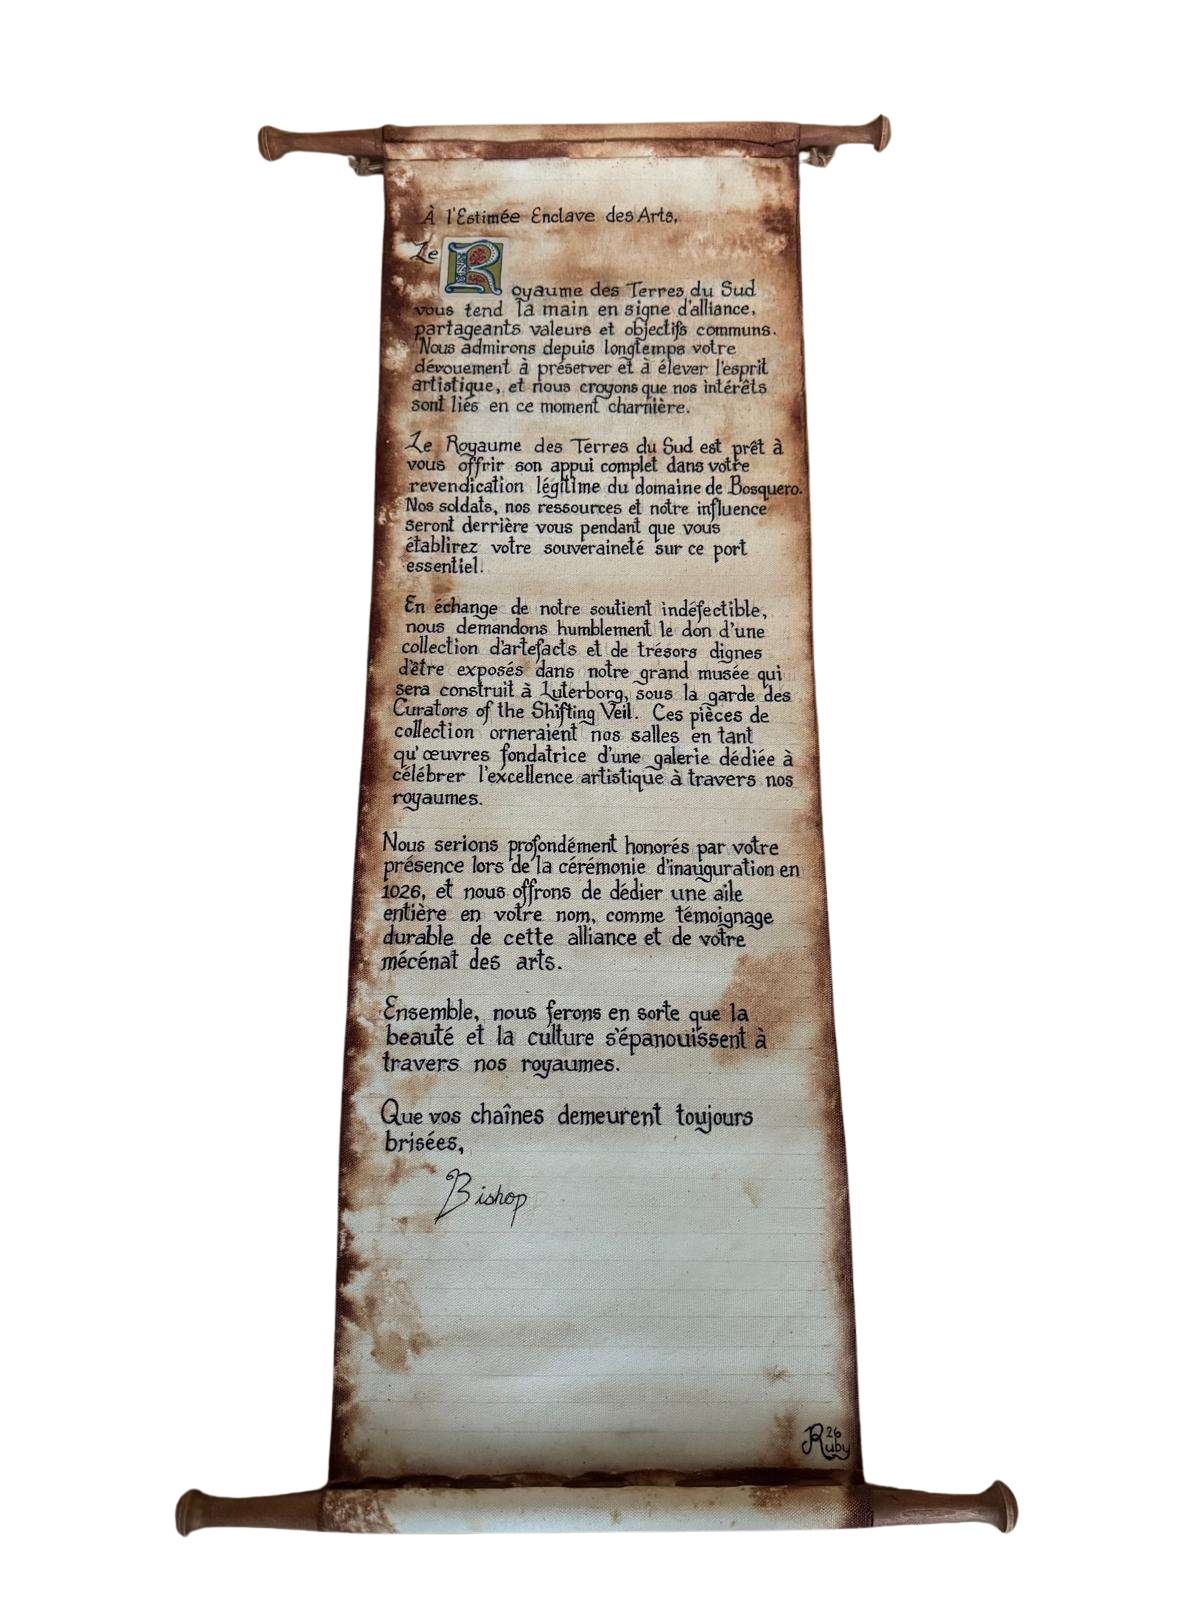 À l'Estimée Enclave des Arts,
Le
Royaume des Terres du Sud
vous tend la main en signe d'alliance,
partageants valeurs et objectifs communs.
Nous admirons depuis longtemps votre
dévouement à préserver et à élever l'esprit
artistique, et nous croyons que nos intérêts
sont liés en ce moment charnière.
Le Royaume des Terres du Sud est prêt à
vous offrir son appui complet dans votre
revendication légitime du domaine de Bosquero.
Nos soldats, nos ressources et notre influence
seront derrière vous pendant que vous
établirez votre souveraineté sur ce port
essentiel.
En échange de notre soutient indéfectible,
nous demandons humblement le don d'une
collection d'artefacts et de trésors dignes
d'être exposés dans notre grand musée qui
sera construit à Luterborg, sous la garde des
Curators of the Shifting Veil. Ces pièces de
collection orneraient nos salles en tant
qu'œuvres fondatrice d'une galerie dédiée à
célébrer l'excellence artistique à travers nos
royaumes.
Nous serions profondément honorés par votre
présence lors de la cérémonie d'inauguration en
1026, et nous offrons de dédier une aile
entière en votre nom, comme témoignage
durable de cette alliance et de votre
mécénat des arts.
Ensemble, nous ferons en sorte que la
beauté et la culture s'épanouissent à
travers nos royaumes.
Que vos chaînes demeurent toujours
brisées,
Bishop
26
Ruby